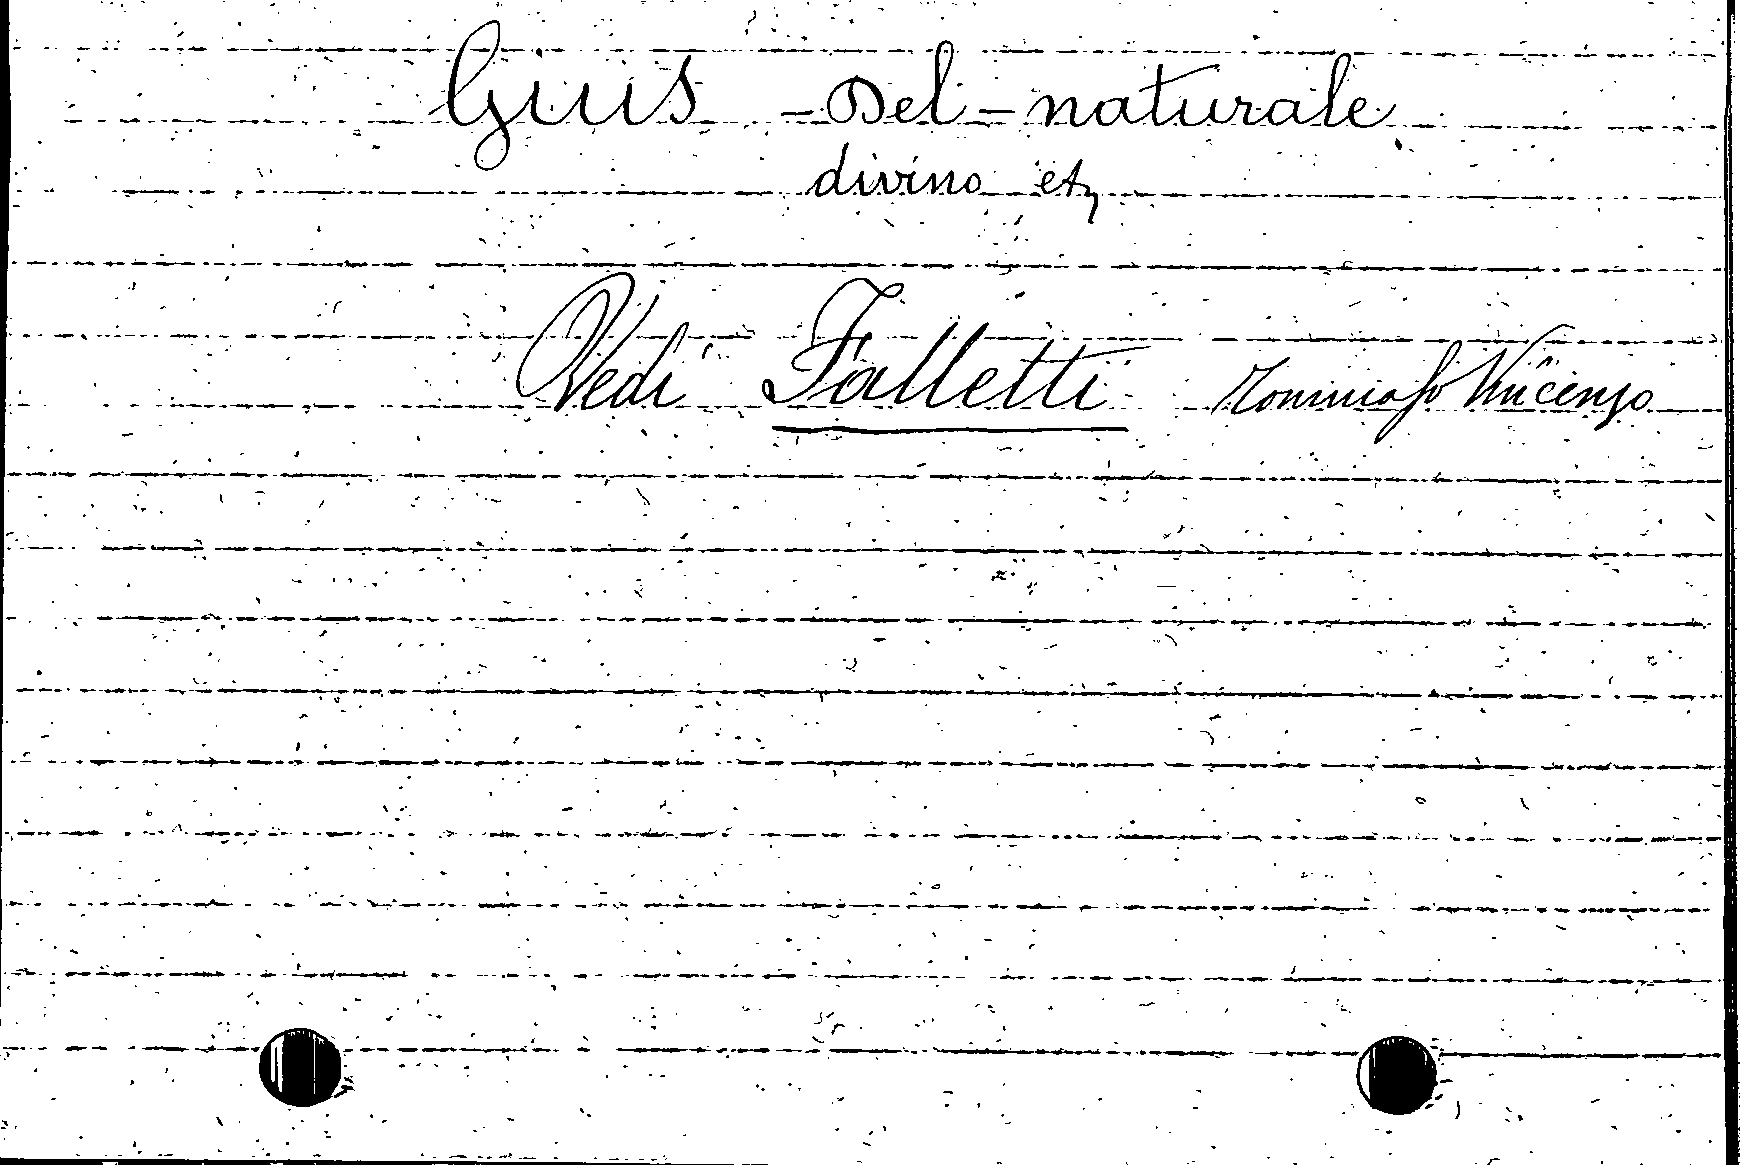 Gius - Del - naturale
divino et
Vedi Falletti Tommaso Vincenzo